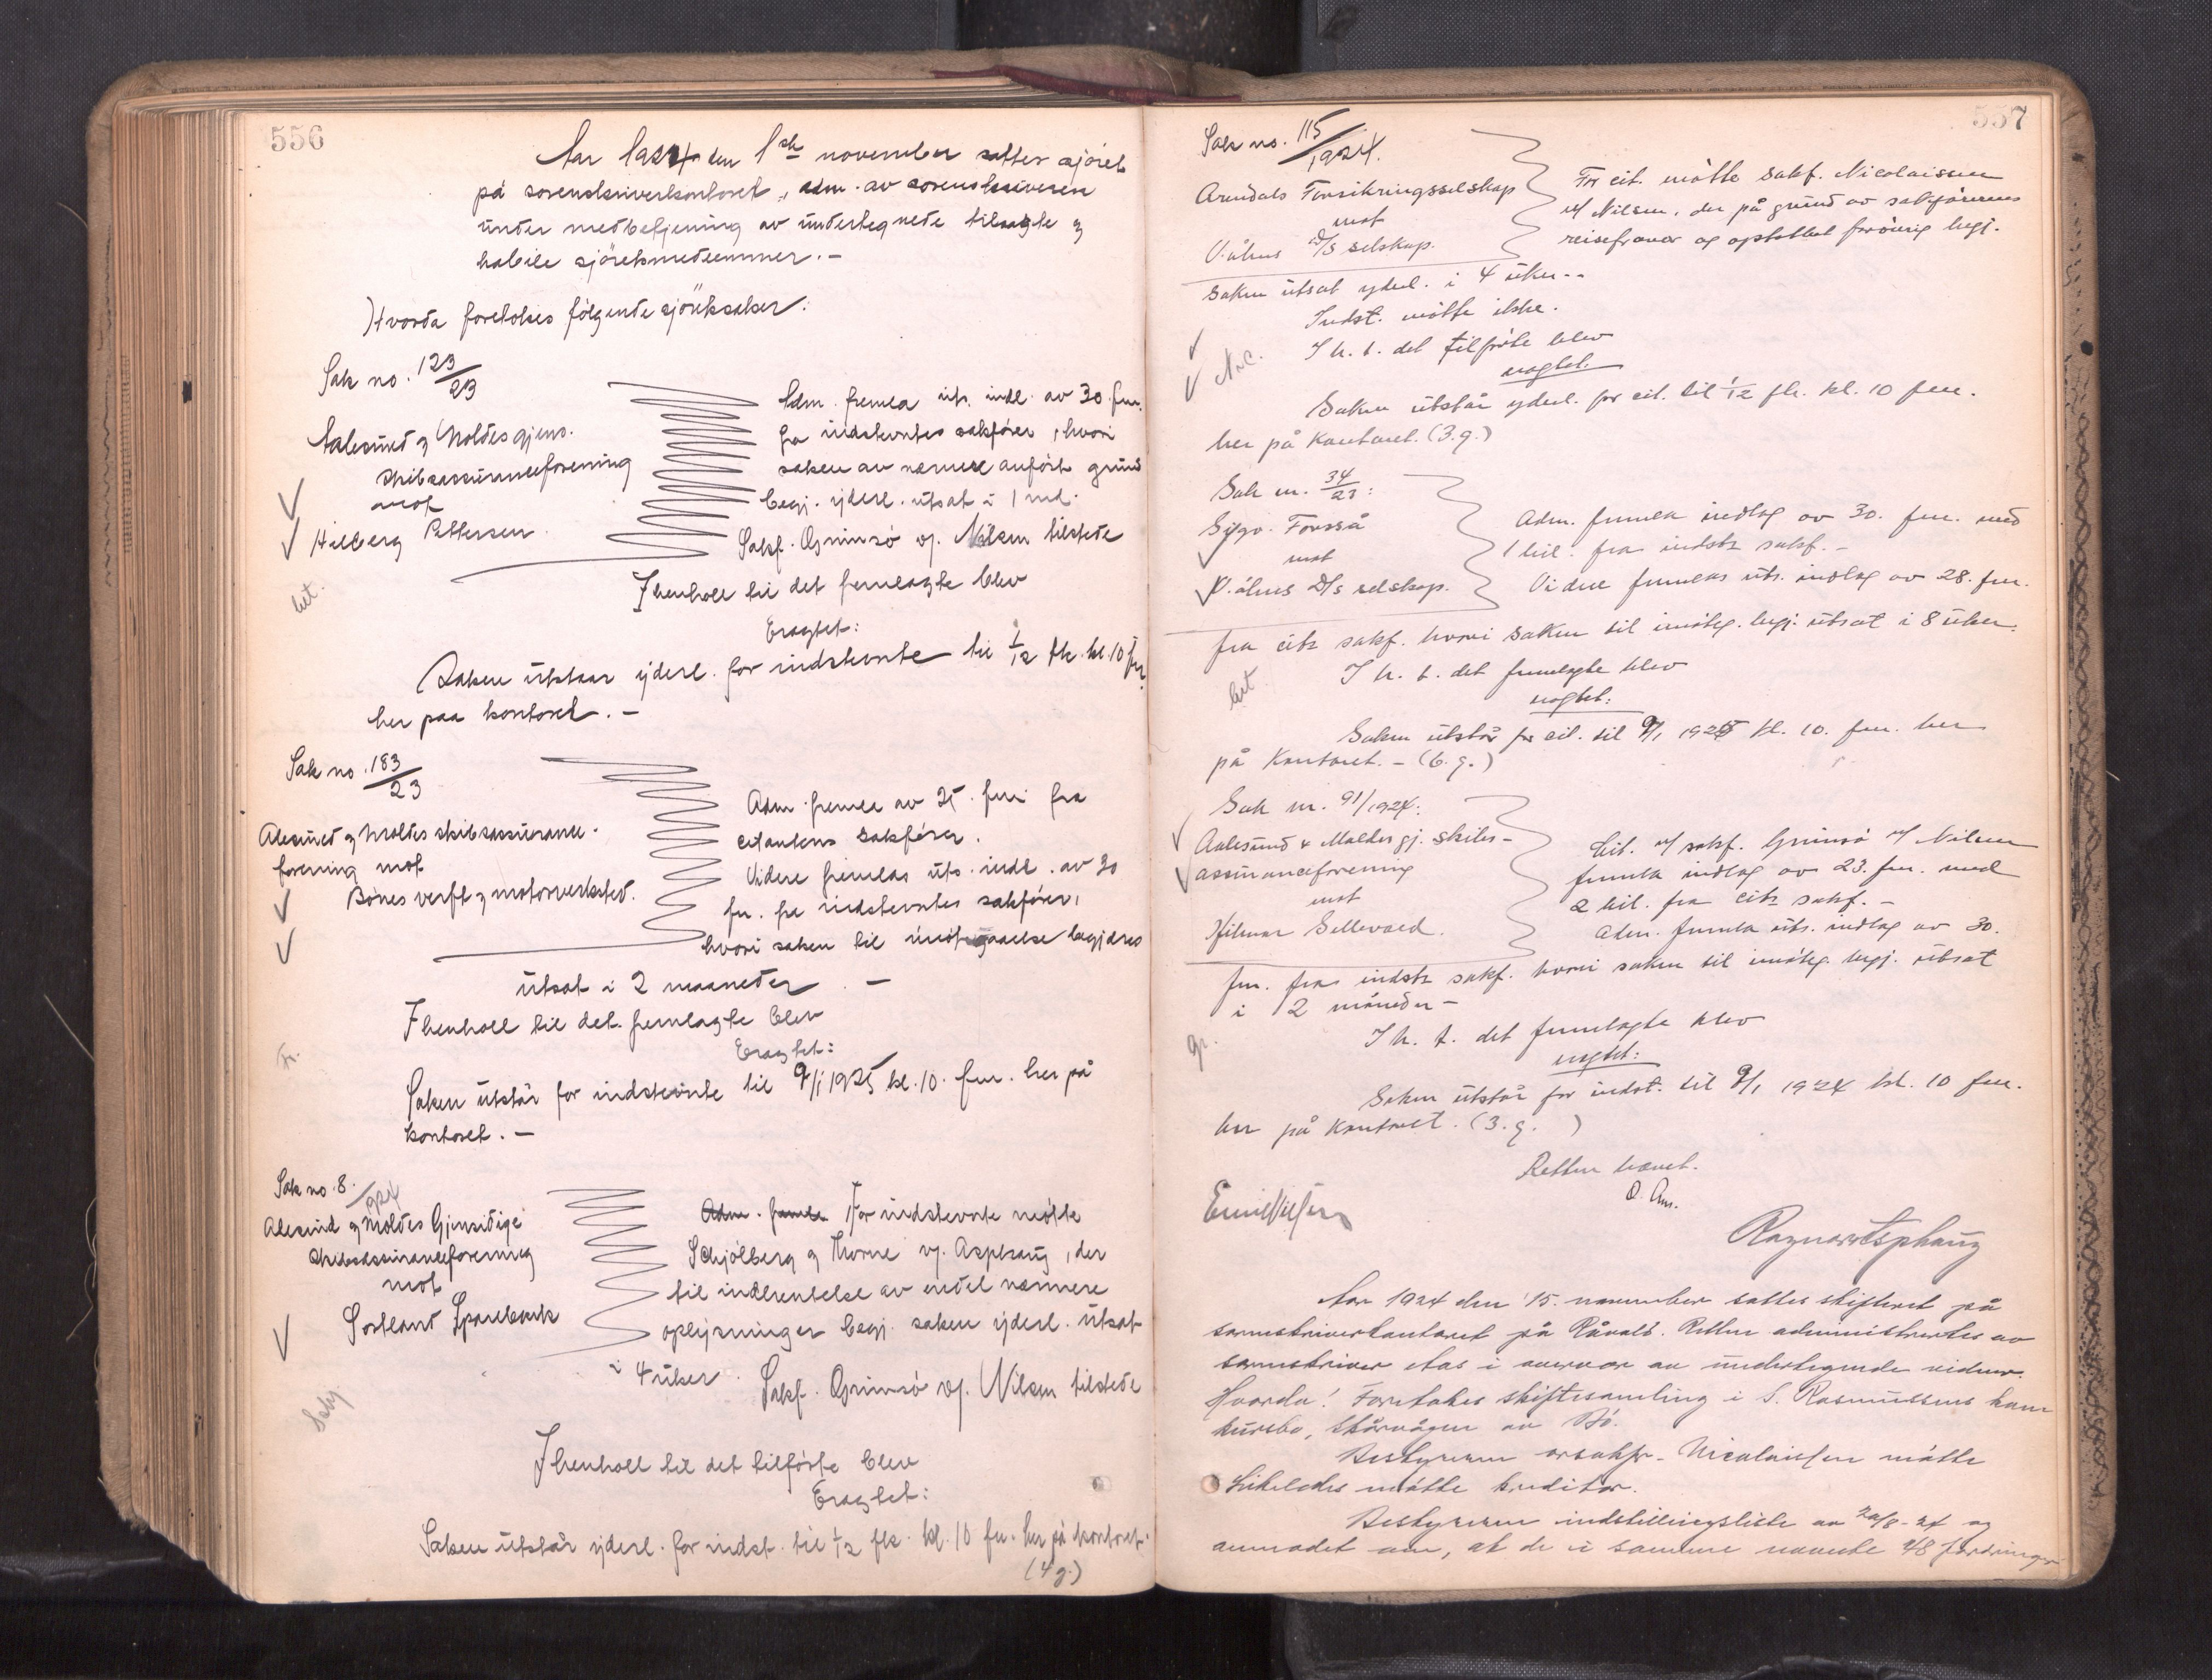 556
Aar 1924 den 1ste november sattes sjöret
på sorenskriverkontoret, adm. av sorenskriveren
under medbetjening av undertegnede tilsagte og
habile sjöretsmedlemmer. -
Hvorda foretokes følgende sjöretssaker:
Sak no. 123/23
Aalesund og Moldes gjens.
skibsassuranceforening
mot
Hilberg Pettersen
Adm. fremla uts. indl. av 30. fm.
fra indstevntes sakfører, hvori
saken av nærmere anført grund
begj. yderl. utsat i 1 md.
Sakf. Grimsö v/ Nilsen tilstede
I henhold til det fremlagte blev
Eragtet:
Saken utstaar yderl. for indstevnte til 1/12 fk. kl. 10 fm.
her paa kontoret. -
Sak no. 183/23
Alesund og Moldes skibsassurance-
forening mot
Bönes verft og motorverksted.
Adm. fremla av 25. fm. fra
citantens sakfører.
Videre fremlas uts. indl. av 30
fm. fra indstevntes sakfører,
hvori saken til imötegaaelse begjæres
utsat i 2 maaneder. -
I henhold til det fremlagte blev
Eragtet:
Saken utstår for indstevnte til 9/1 1925 kl. 10. fm. her på
kontoret. -
Sak no. 8/924
Alesund og Moldes Gjensidige
skibsassuranceforening
mot
Sortland Sparebank
Adm. fremla For indstevnte møtte
Schjölberg og Thorne v/ Asphaug, der
til indhentelse av endel nærmere
oplysninger begj. saken yderl. utsat
i 4 uker. Sakf. Grimsö v/ Nilsen tilstede
I henhold til det tilførte blev
Eragtet:
Saken utstår yderl. for indst. til 1/12 flk. kl. 10 fm. her på kontoret.
(4 g.)
557
Sak no. 115/1924.
Arendals Forsikringsselskap
mot
V.ålens D/S selskap.
For cit. møtte sakf. Nicolaissen
v/ Nilsen, der på grund av sakførerens
reisefravær og optatthet forøvrig begj.
saken utsat yderl. i 4 uker. -
Indst. møtte ikke.
I h. t. det tilførte blev
eragtet:
Saken utstår yderl. for cit. til 1/12 flk. kl. 10 fm.
her på kontoret. (3. g.)
Sak nr. 34/23:
Forsså
mot
V.ålens D/S selskap.
Adm. fremla indlæg av 30. fm. med
1 bil. fra indsts sakf. -
Videre fremlas uts. indlæg av 28. fm.
fra cits sakf. hvori saken til imøteg. begj. utsat i 8 uker.
I h. t. det fremlagte blev
eragtet:
Saken utstår for cit. til 9/1 1925 kl. 10. fm. her
på kontoret. - (6. g.)
Sak nr. 91/1924:
Aalesund & Moldes gj. skibs-
assuranceforening
mot
Hilmar Sellevold.
Cit. v/ sakf. Grimsö v/ Nilsen
fremla indlæg av 23. fm. med
2 bil. fra cits sakf. -
Adm. fremla uts. indlæg av 30.
fm. fra indsts sakf. hvori saken til imøteg. begj. utsat
i 2 måneder -
I h. t. det fremlagte blev
eragtet:
Saken utstår for indst. til 9/1 1924 kl. 10 fm.
her på kontoret. (3. g. )
Retten hævet.
O. Aas.
Emil Nilsen
Ragnar Asphaug
Aar 1924 den 15. november sattes skifteret på
sorenskriverkontoret på Råvoll. Retten administrertes av
sorenskriver Aas i overvær av undertegnede vidner.
Hvorda! Foretokes skiftesamling i S. Rasmussens kon
kursbo, Skårvågen av Bö.
Bestyreren orsakfr. Nicolaissen møtte
Likeledes møtte kreditor.
Bestyreren indstillingsliste av 20/8-24 og
anmodet om, at de i samme nævnte 48 fordringer